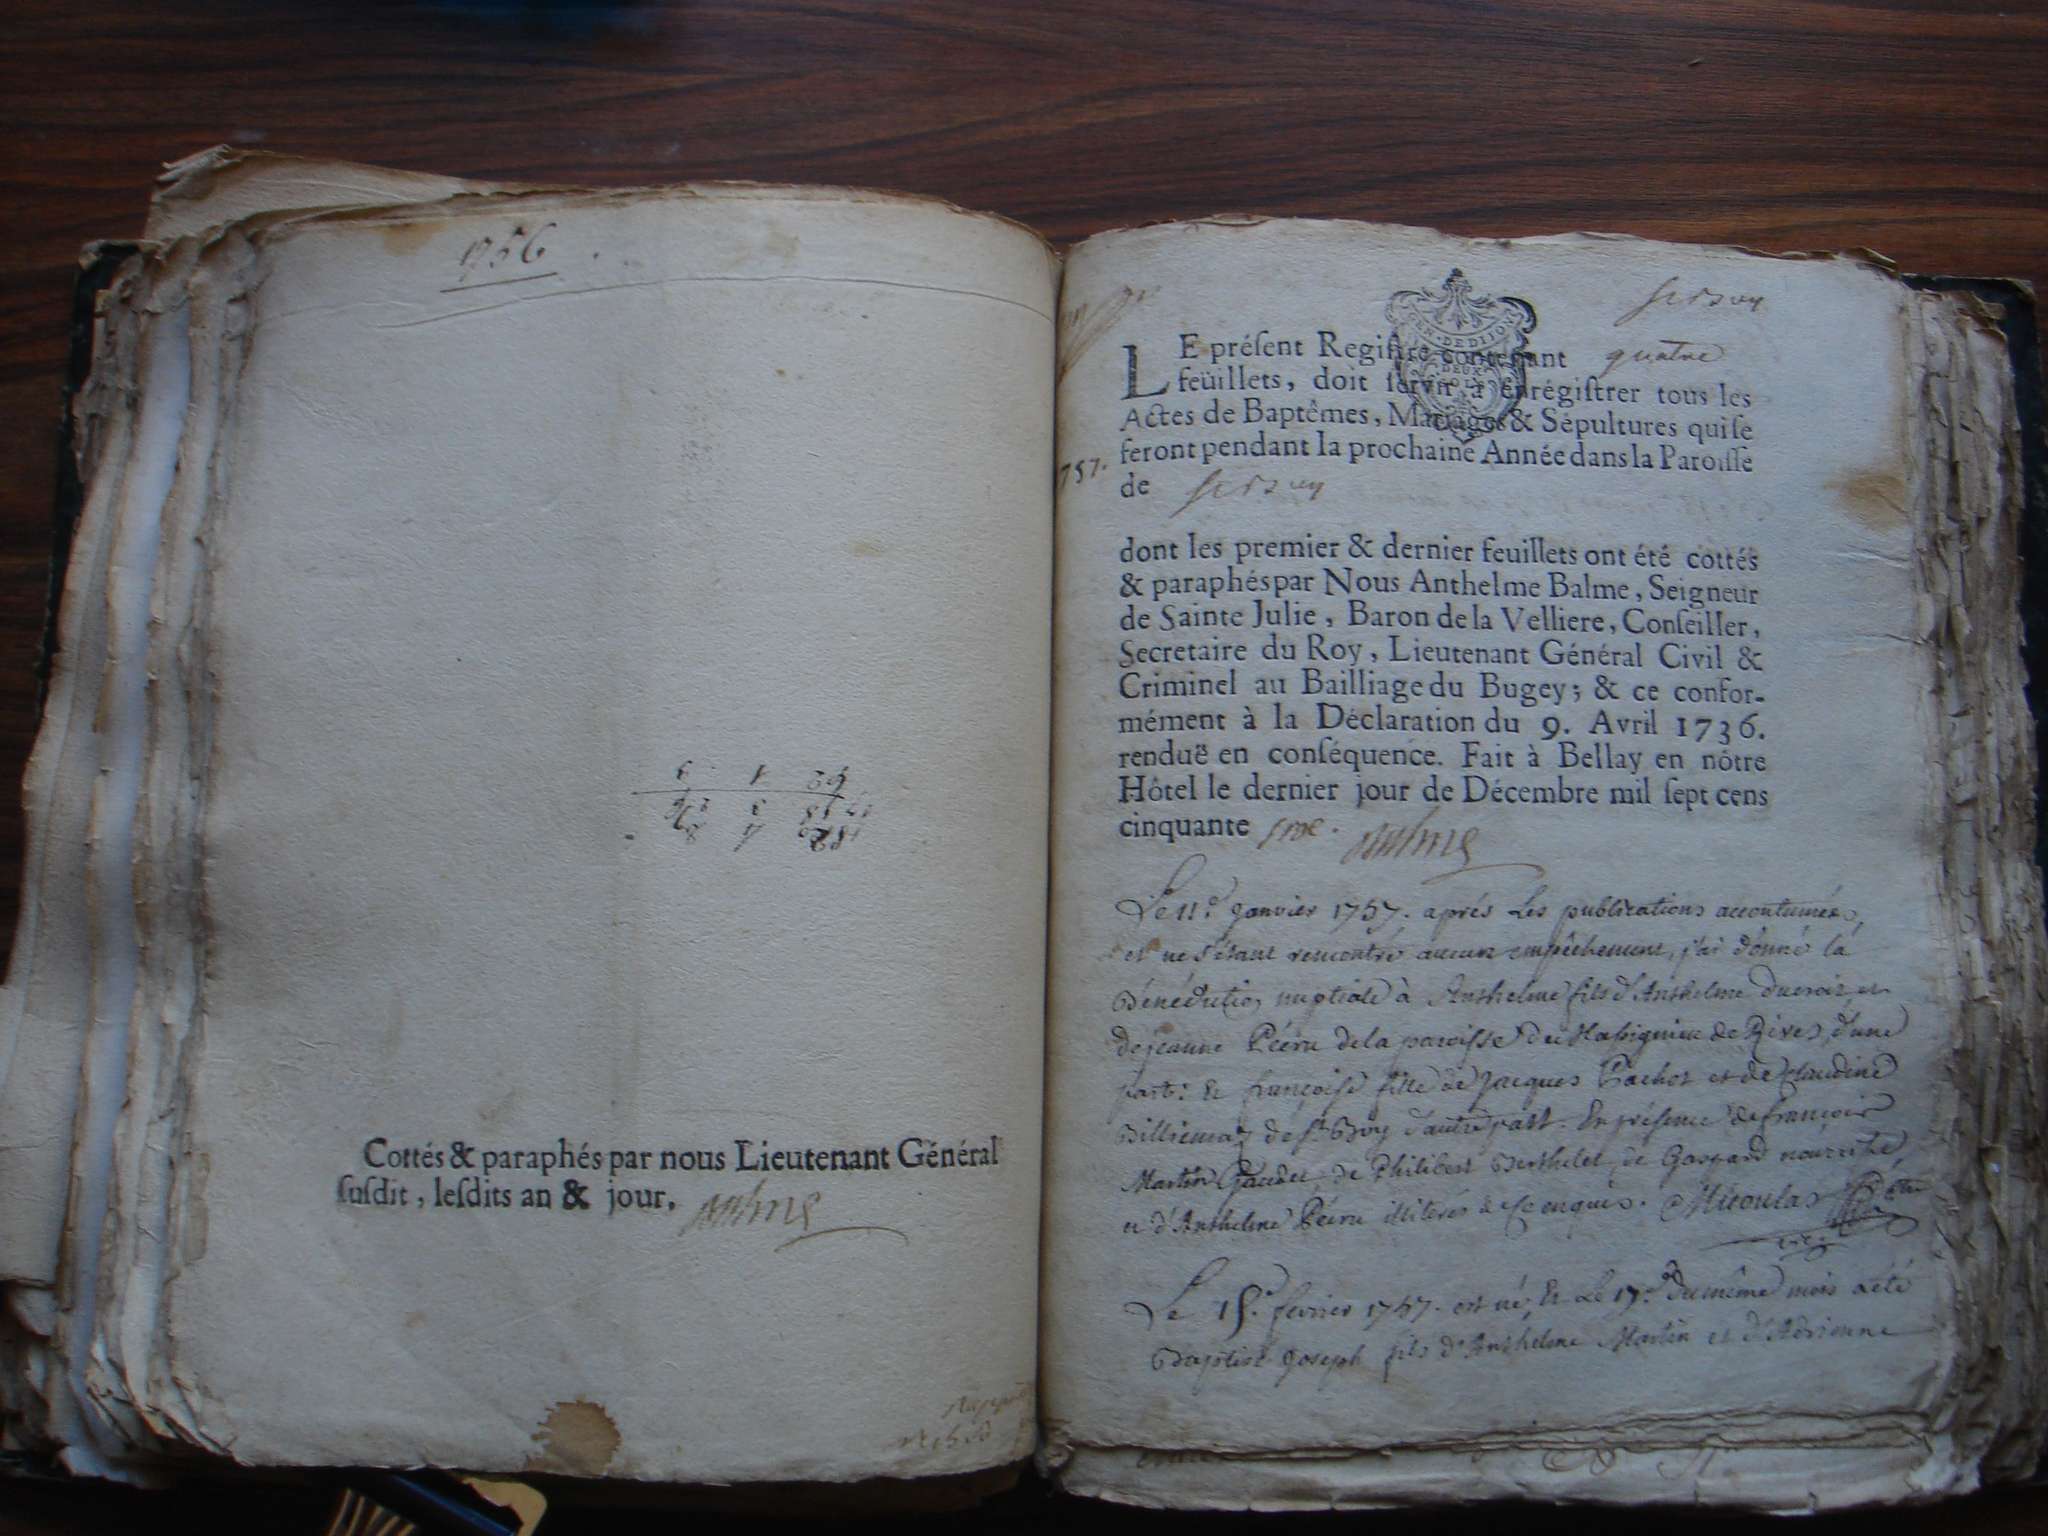 1756
Cottés & paraphés par nous Lieutenant Général
susdit, lesdits an & jour. Balme
LE présent Registre contenant quatre
feüillets, doit servir à enrégistrer tous les
Actes de Baptêmes, Mariages & Sépultures qui se
feront pendant la prochaine Année dans la Paroisse
de
757.
dont les premier & dernier feuillets ont été cottés
& paraphés par Nous Anthelme Balme, Seigneur
de Sainte Julie, Baron de la Velliere, Conseiller,
Secretaire du Roy, Lieutenant Général Civil &
Criminel au Bailliage du Bugey; & ce confor-
mément à la Déclaration du 9. Avril 1736.
renduë en conséquence. Fait à Bellay en nôtre
Hôtel le dernier jour de Décembre mil sept cens
cinquante Balme
Le 11e. janvier 1757. aprés Les publications accoutumées,
et ne s'étant rencontré aucun empêchement, j'ai donné la
Bénédiction nuptiale à Anthelme fils d'Anthelme ducroix et
de jeanne Péeru de la paroisse de de Rives d'une
part: & françoise fille de jacques Pachot et de claudine
Billiemaz de St. Boy d'autre part. En présence de françois
Martin Gaudet, de Philibert Berthelet, de Gaspard
et d'Anthelme Péeru illiterés de ce enquis. Micoulas
Le 15e. fevrier 1757. est né, & Le 17e. du même mois a été
Baptisé joseph fils d'Anthelme Martin et d'Adrienne